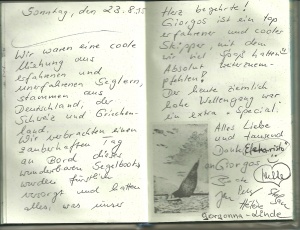 Sonntag, den 23.8.
Wir waren eine coole
Mischung aus
erfahrenen und
unerfahrenen Seglern
stammen aus
Deutschland, der
Schweiz und Griechen-
land.
Wir verbrachten einen
zauberhaften Tag
an Bord dieses
wunderbaren Segelboots
wurden fürstlich
versorgt und hatten
alles, was unser
Herz begehrte!
Giorgos ist ein top
erfahrener und cooler
Skipper, mit dem
wir viel Spaß hatten
Absolut
Der heute ziemlich
hohe Wellengang war
ein extra - Special.
Alles Liebe
und tausend
Dank
Giorgos